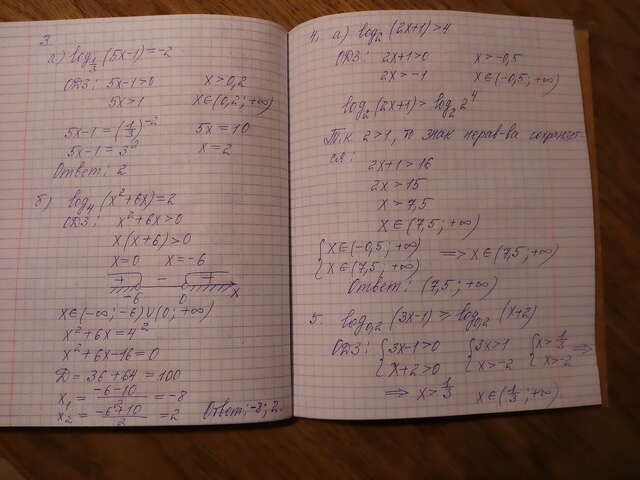 3.
а) log_{1/3} (5x-1) = -2
ОДЗ: 5x-1>0 x>0,2
5x>1 x∈(0,2; +∞)
5x-1 = (1/3)^{-2} 5x=10
5x-1=3^2 x=2
Ответ: 2
б) log_4 (x^2+6x)=2
ОДЗ: x^2+6x>0
x(x+6)>0
x=0 x=-6
+ - +
-6 0 x
x∈(-∞; -6)∪(0; +∞)
x^2+6x=4^2
x^2+6x-16=0
D=36+64=100
x_1 = (-6-10)/2 = -8
x_2 = (-6+10)/2 = 2 Ответ: -8; 2.
4. а) log_2 (2x+1)>4
ОДЗ: 2x+1>0 x>-0,5
2x>-1 x∈(-0,5; +∞)
log_2 (2x+1) > log_2 2^4
Т.к. 2>1, то знак нерав-ва сохраняет-
ся:
2x+1>16
2x>15
x>7,5
x∈(7,5; +∞)
{x∈(-0,5; +∞)
{x∈(7,5; +∞) => x∈(7,5; +∞)
Ответ: (7,5; +∞)
5. log_{0,2} (3x-1) ≥ log_{0,2} (x+2)
ОДЗ: {3x-1>0 {3x>1 {x>1/3 =>
{x+2>0 {x>-2 {x>-2
=> x>1/3 x∈(1/3; +∞)